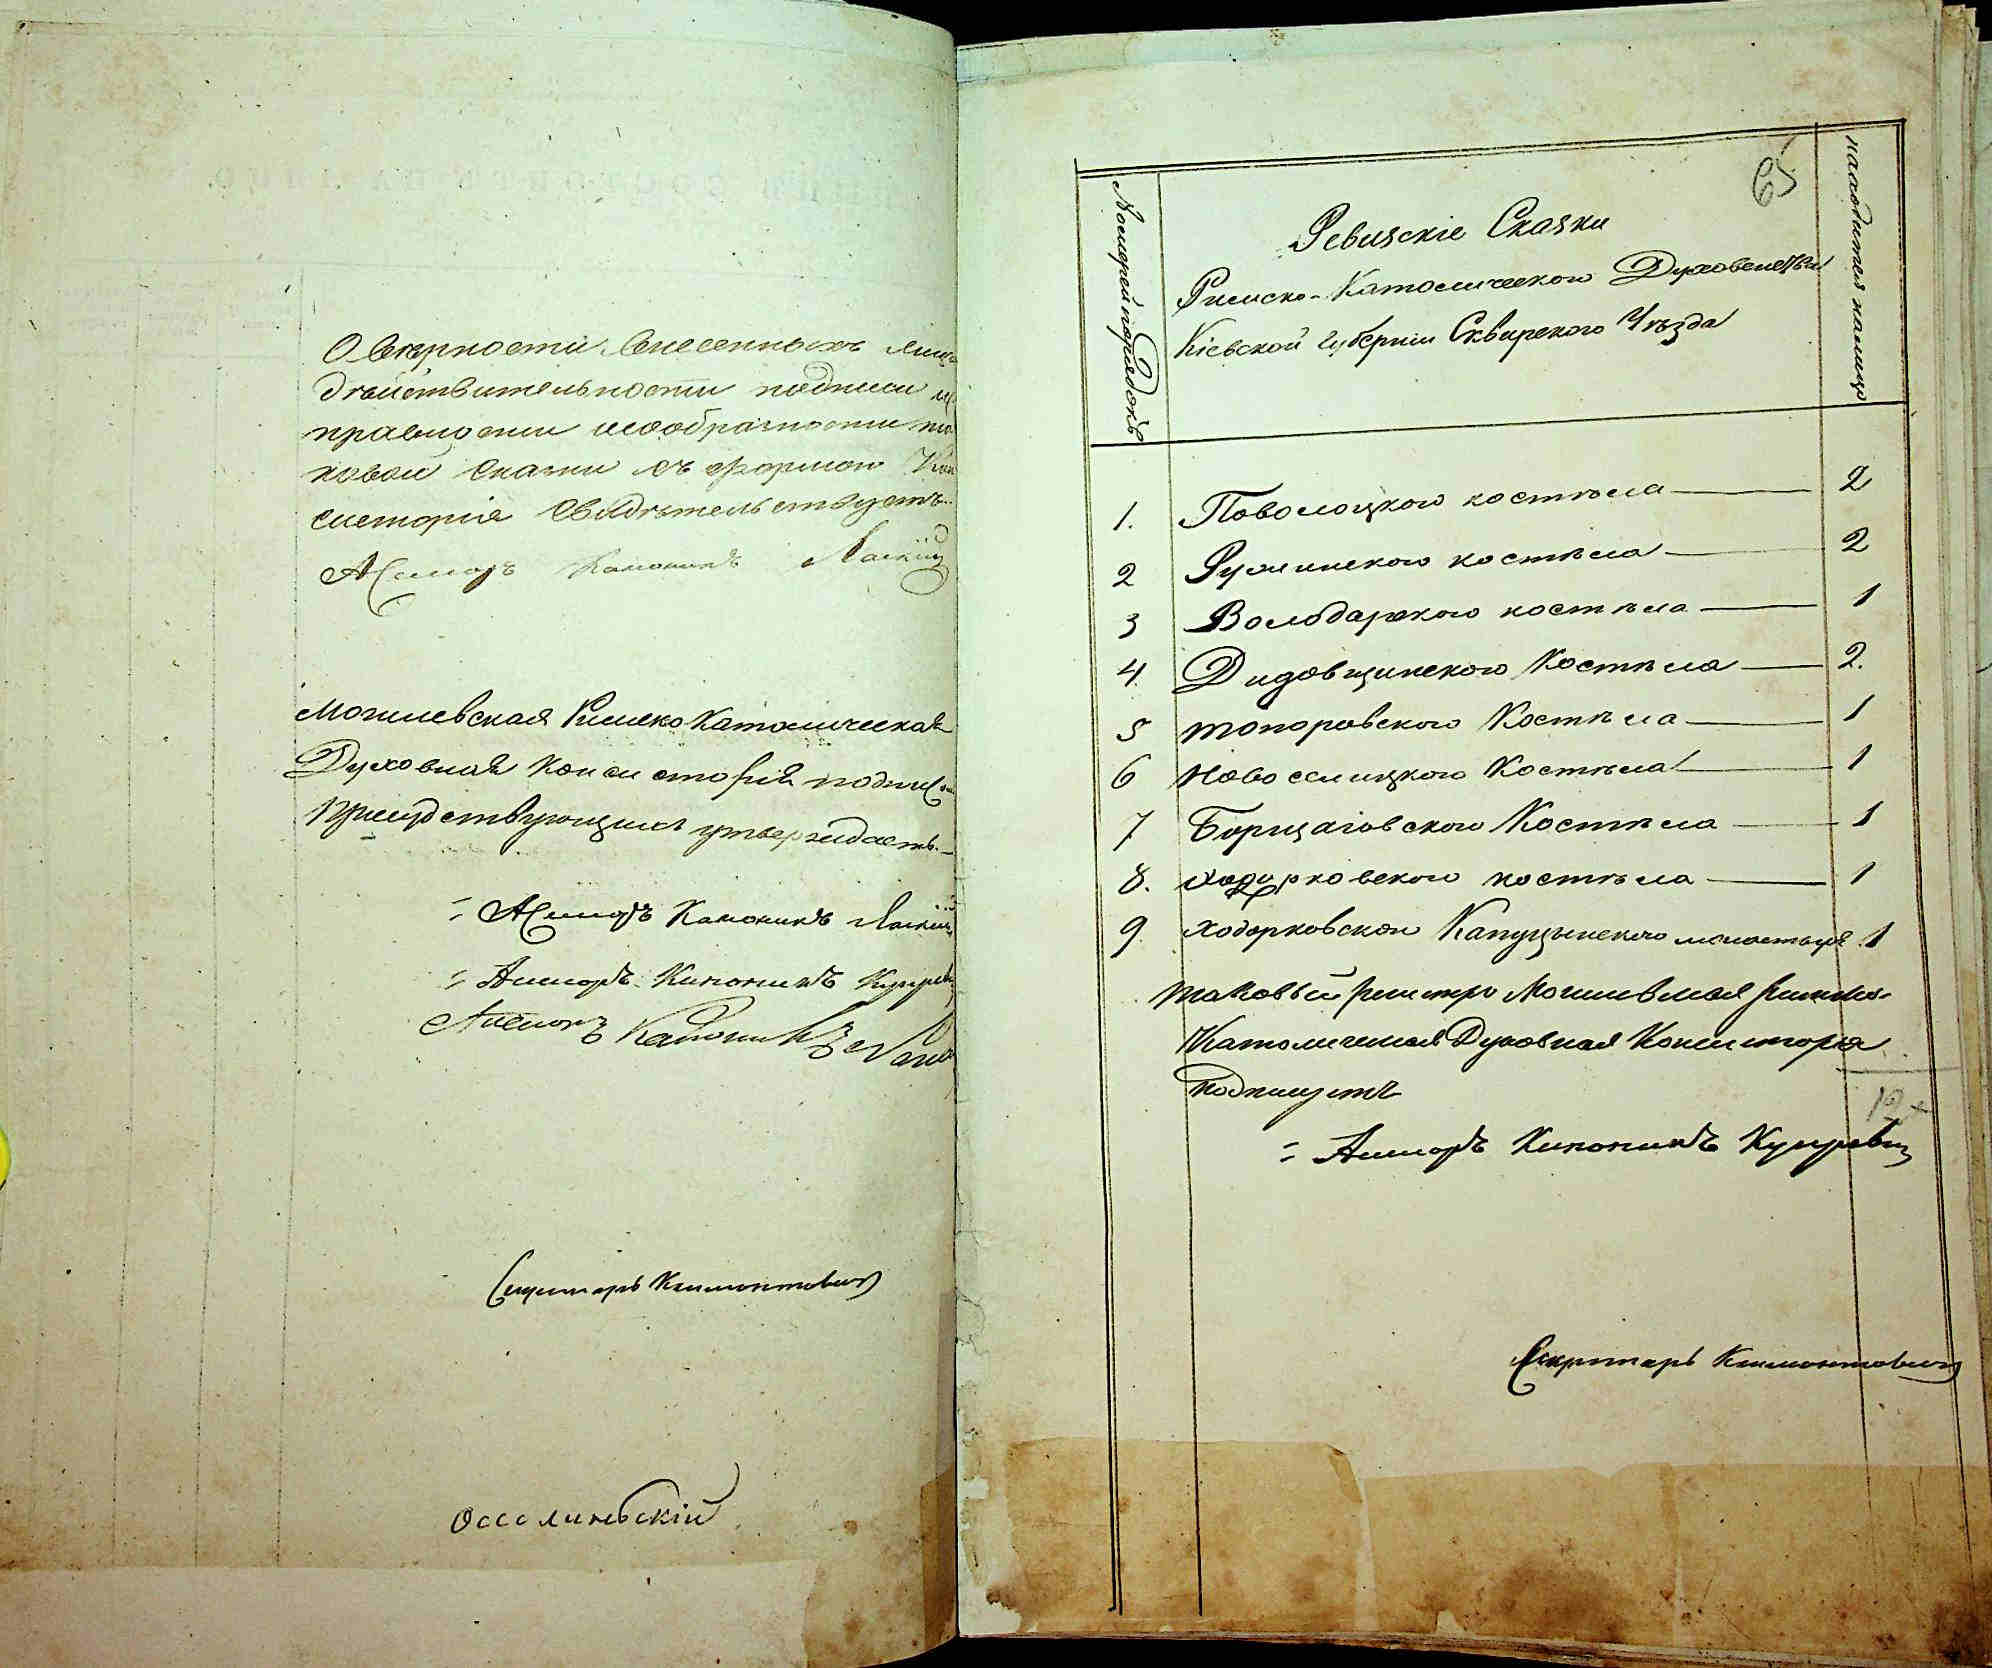 О верности внесенныхъ лицъ
действительности подписи и
правности и сообразности та
ковой Сказки съ формою Кон
систорія свидѣтельствуетъ.
Асессоръ Каноникъ
Могилевская Римско Католическая
Духовная Консисторія подписомъ
присудствующихъ утверждаетъ.
Асессоръ Каноникъ
Асессоръ Каноникъ
Асессоръ Каноникъ
Секретарь Климонтовичъ
Оссолиньскій
65
Номерей порядокъ
Ревизскіе Сказки
Римско-Католического Духовенства
Кіевской Губерніи Сквирского Уѣзда
находится на лицо
1. Поволоцкого костѣла 2
2 Ружинского костѣла 2
3 Володарского костѣла 1
4 Дидовщинского Костѣла 2.
5 Топоровского Костѣла 1
6 Новоселицкого Костѣла 1
7 Борщаговского Костѣла 1
8. Ходорковского костѣла 1
9. Ходорковскои Капуцынского монастыря 1
Таковый регистръ Могилевская Римско-
Католическая Духовная Консисторія
подписуетъ
12
Асессоръ Каноникъ
Секретарь Климонтовичъ